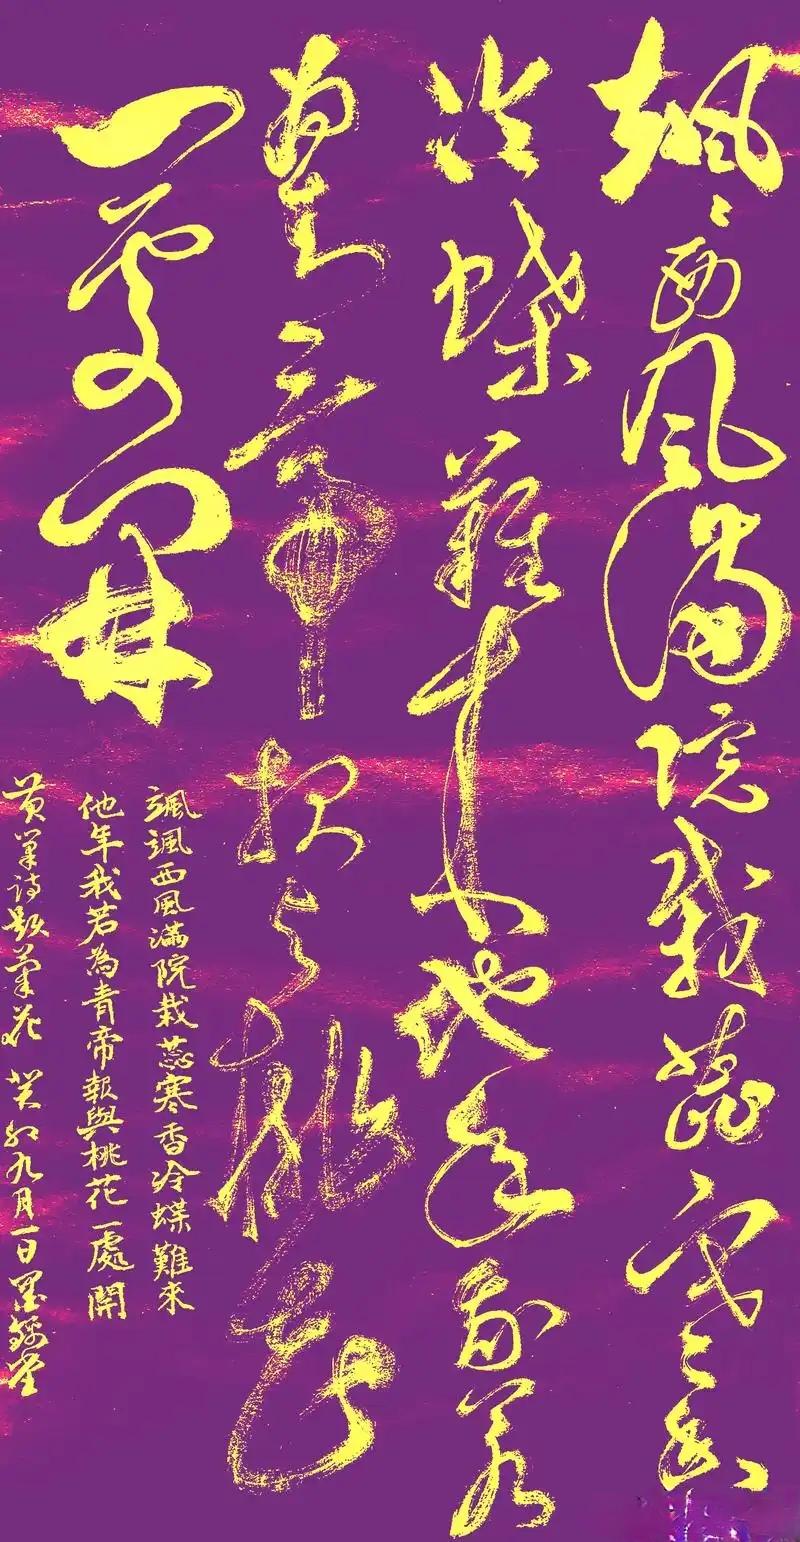 颯〻西風滿院栽蕊寒香
冷蝶難來他年我若
為青帝報與桃花
一處開
颯颯西風滿院栽蕊寒香冷蝶難來
他年我若為青帝報與桃花一處開
黄巢詩題菊花 癸卯九月一日墨